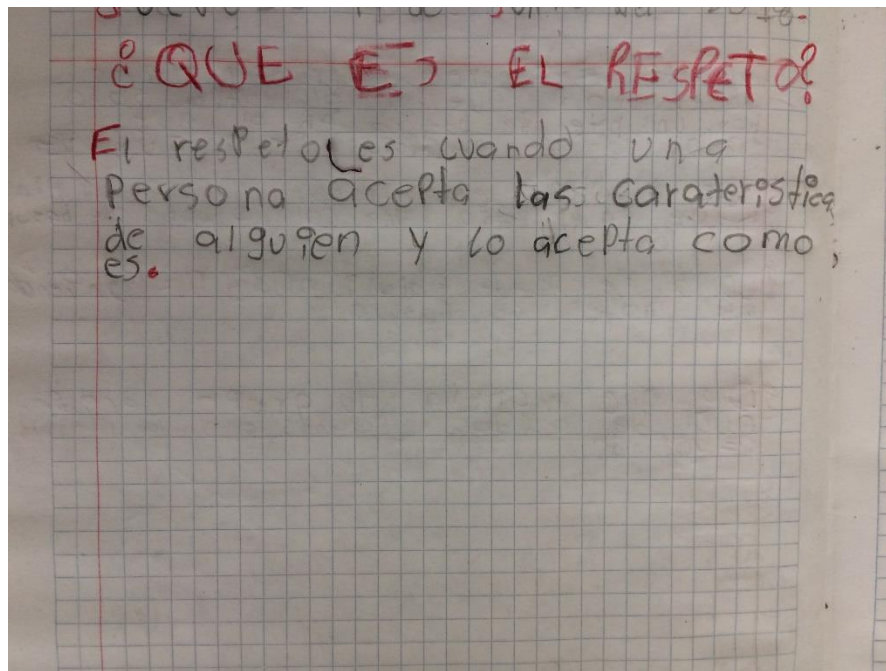 ¿QUE ES EL RESPETO?
El respeto es cuando una
persona acepta las caraterística
de alguien y lo acepta como
es.